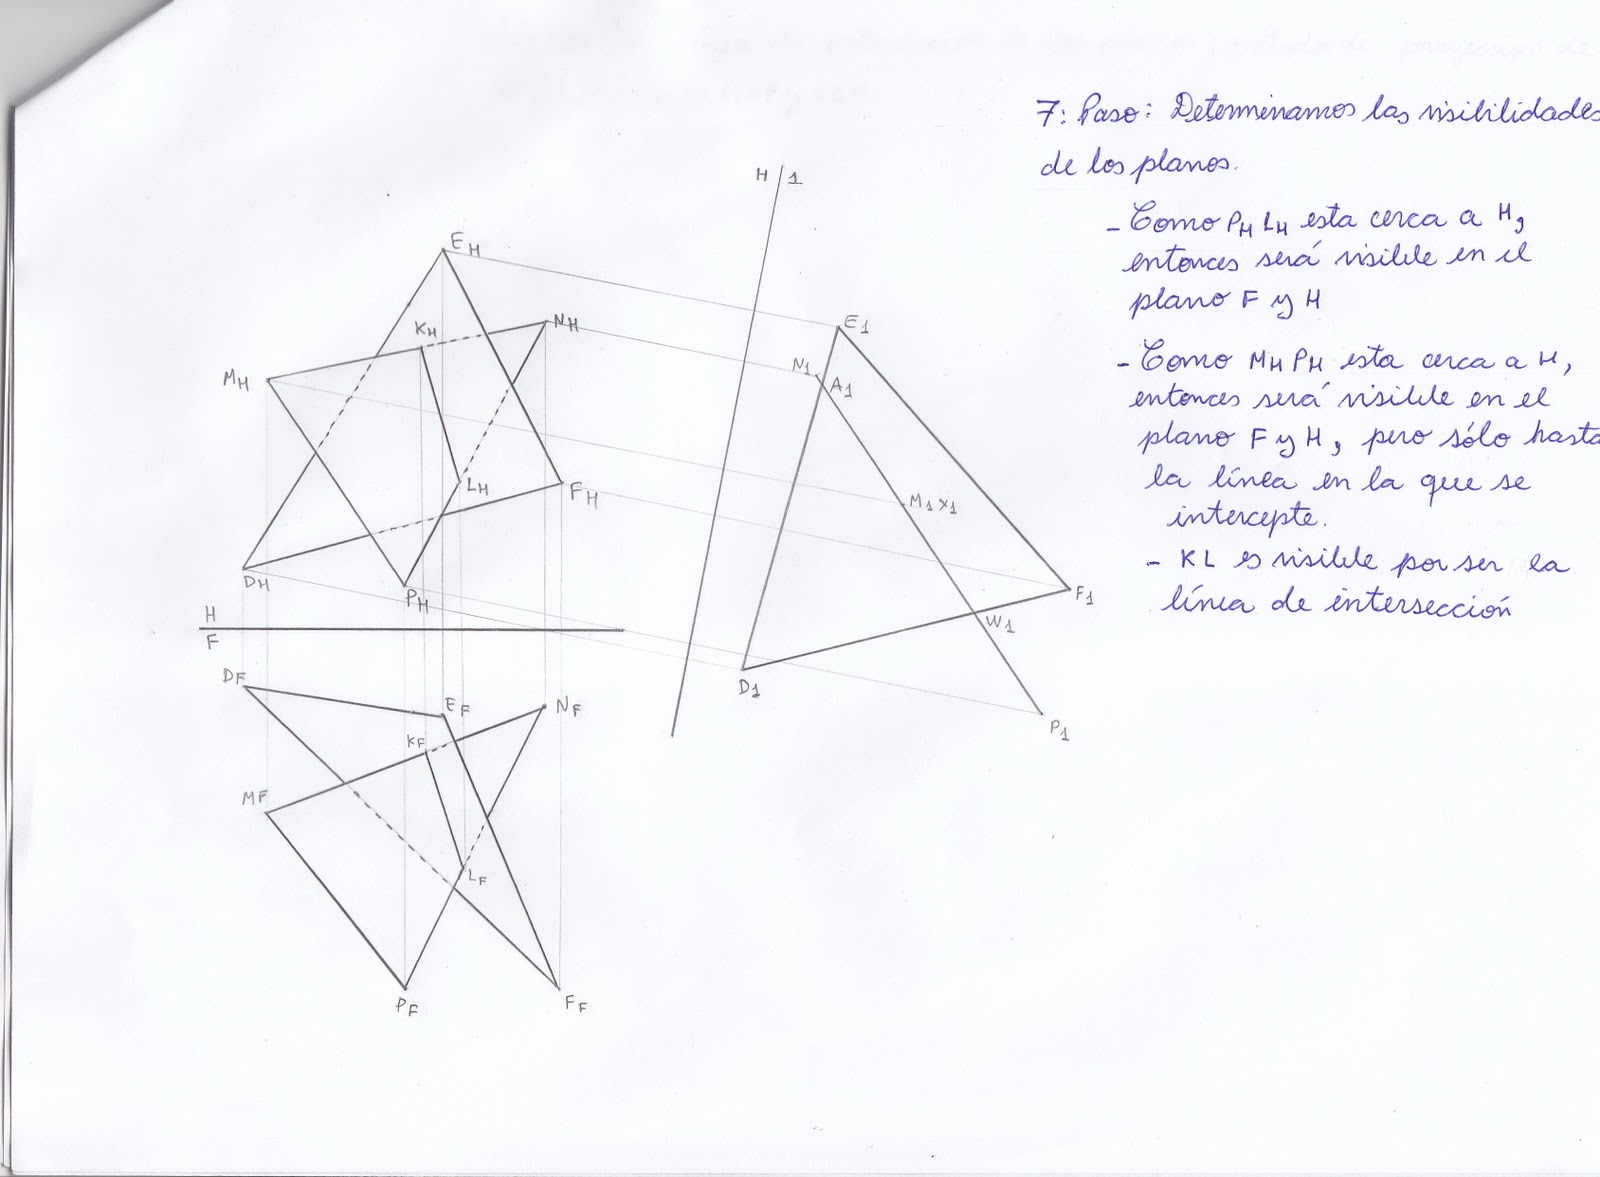 7: Paso: Determinamos las visibilidades
de los planos.
- Como PH LH esta cerca a H,
entonces será visible en el
plano F y H
- Como MH PH esta cerca a H,
entonces será visible en el
plano F y H, pero sólo hasta
la línea en la que se
intercepte.
- KL es visible por ser la
línea de intersección
H 1
EH
KH
NH
MH
LH
FH
DH
PH
H
F
E1
N1
A1
M1 X1
F1
W1
D1
P1
DF
EF
NF
KF
MF
LF
PF
FF